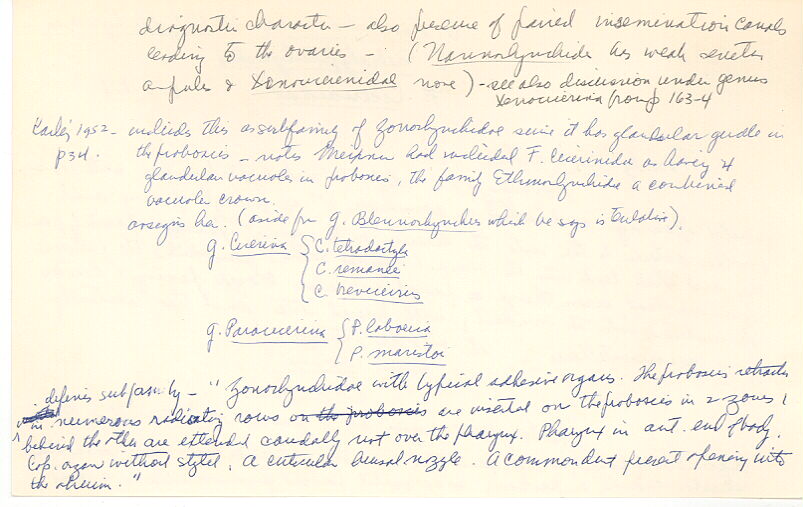 diagnostic character - also presence of paired insemination canals
leading to the ovaries - (Nannorhynchidae has weak
ampules & Xenocicerinidae none) - see also discussion under genus
Xenocicerina from p 163-4
Karling 1952 - includes this as subfamily of Zonorhynchidae since it has glandular girdle in
p 34. the proboscis - notes Meixner had included F. Cicerinidae as having 4
glandular vacuoles in proboscis, the family Ethmorhynchidae a combined
vacuole crown.
assigns here (aside from g. Blennorhynchus which he says is tentative).
g. Cicerina { C. tetradactyla
C. remanei
C. brevicirrus
g. Paracicerina { P. laboeica
P. maristoi
defines subfamily - " Zonorhynchidae with typical adhesive organs. The proboscis retractors
in numerous radiating rows on the proboscis are inserted on the proboscis in 2 zones,
behind the other are extended caudally not over the pharynx. Pharynx in ant. end of body.
Cop. organ without stylet. A cuticular bursal nozzle. A common duct present opening into
the atrium. "